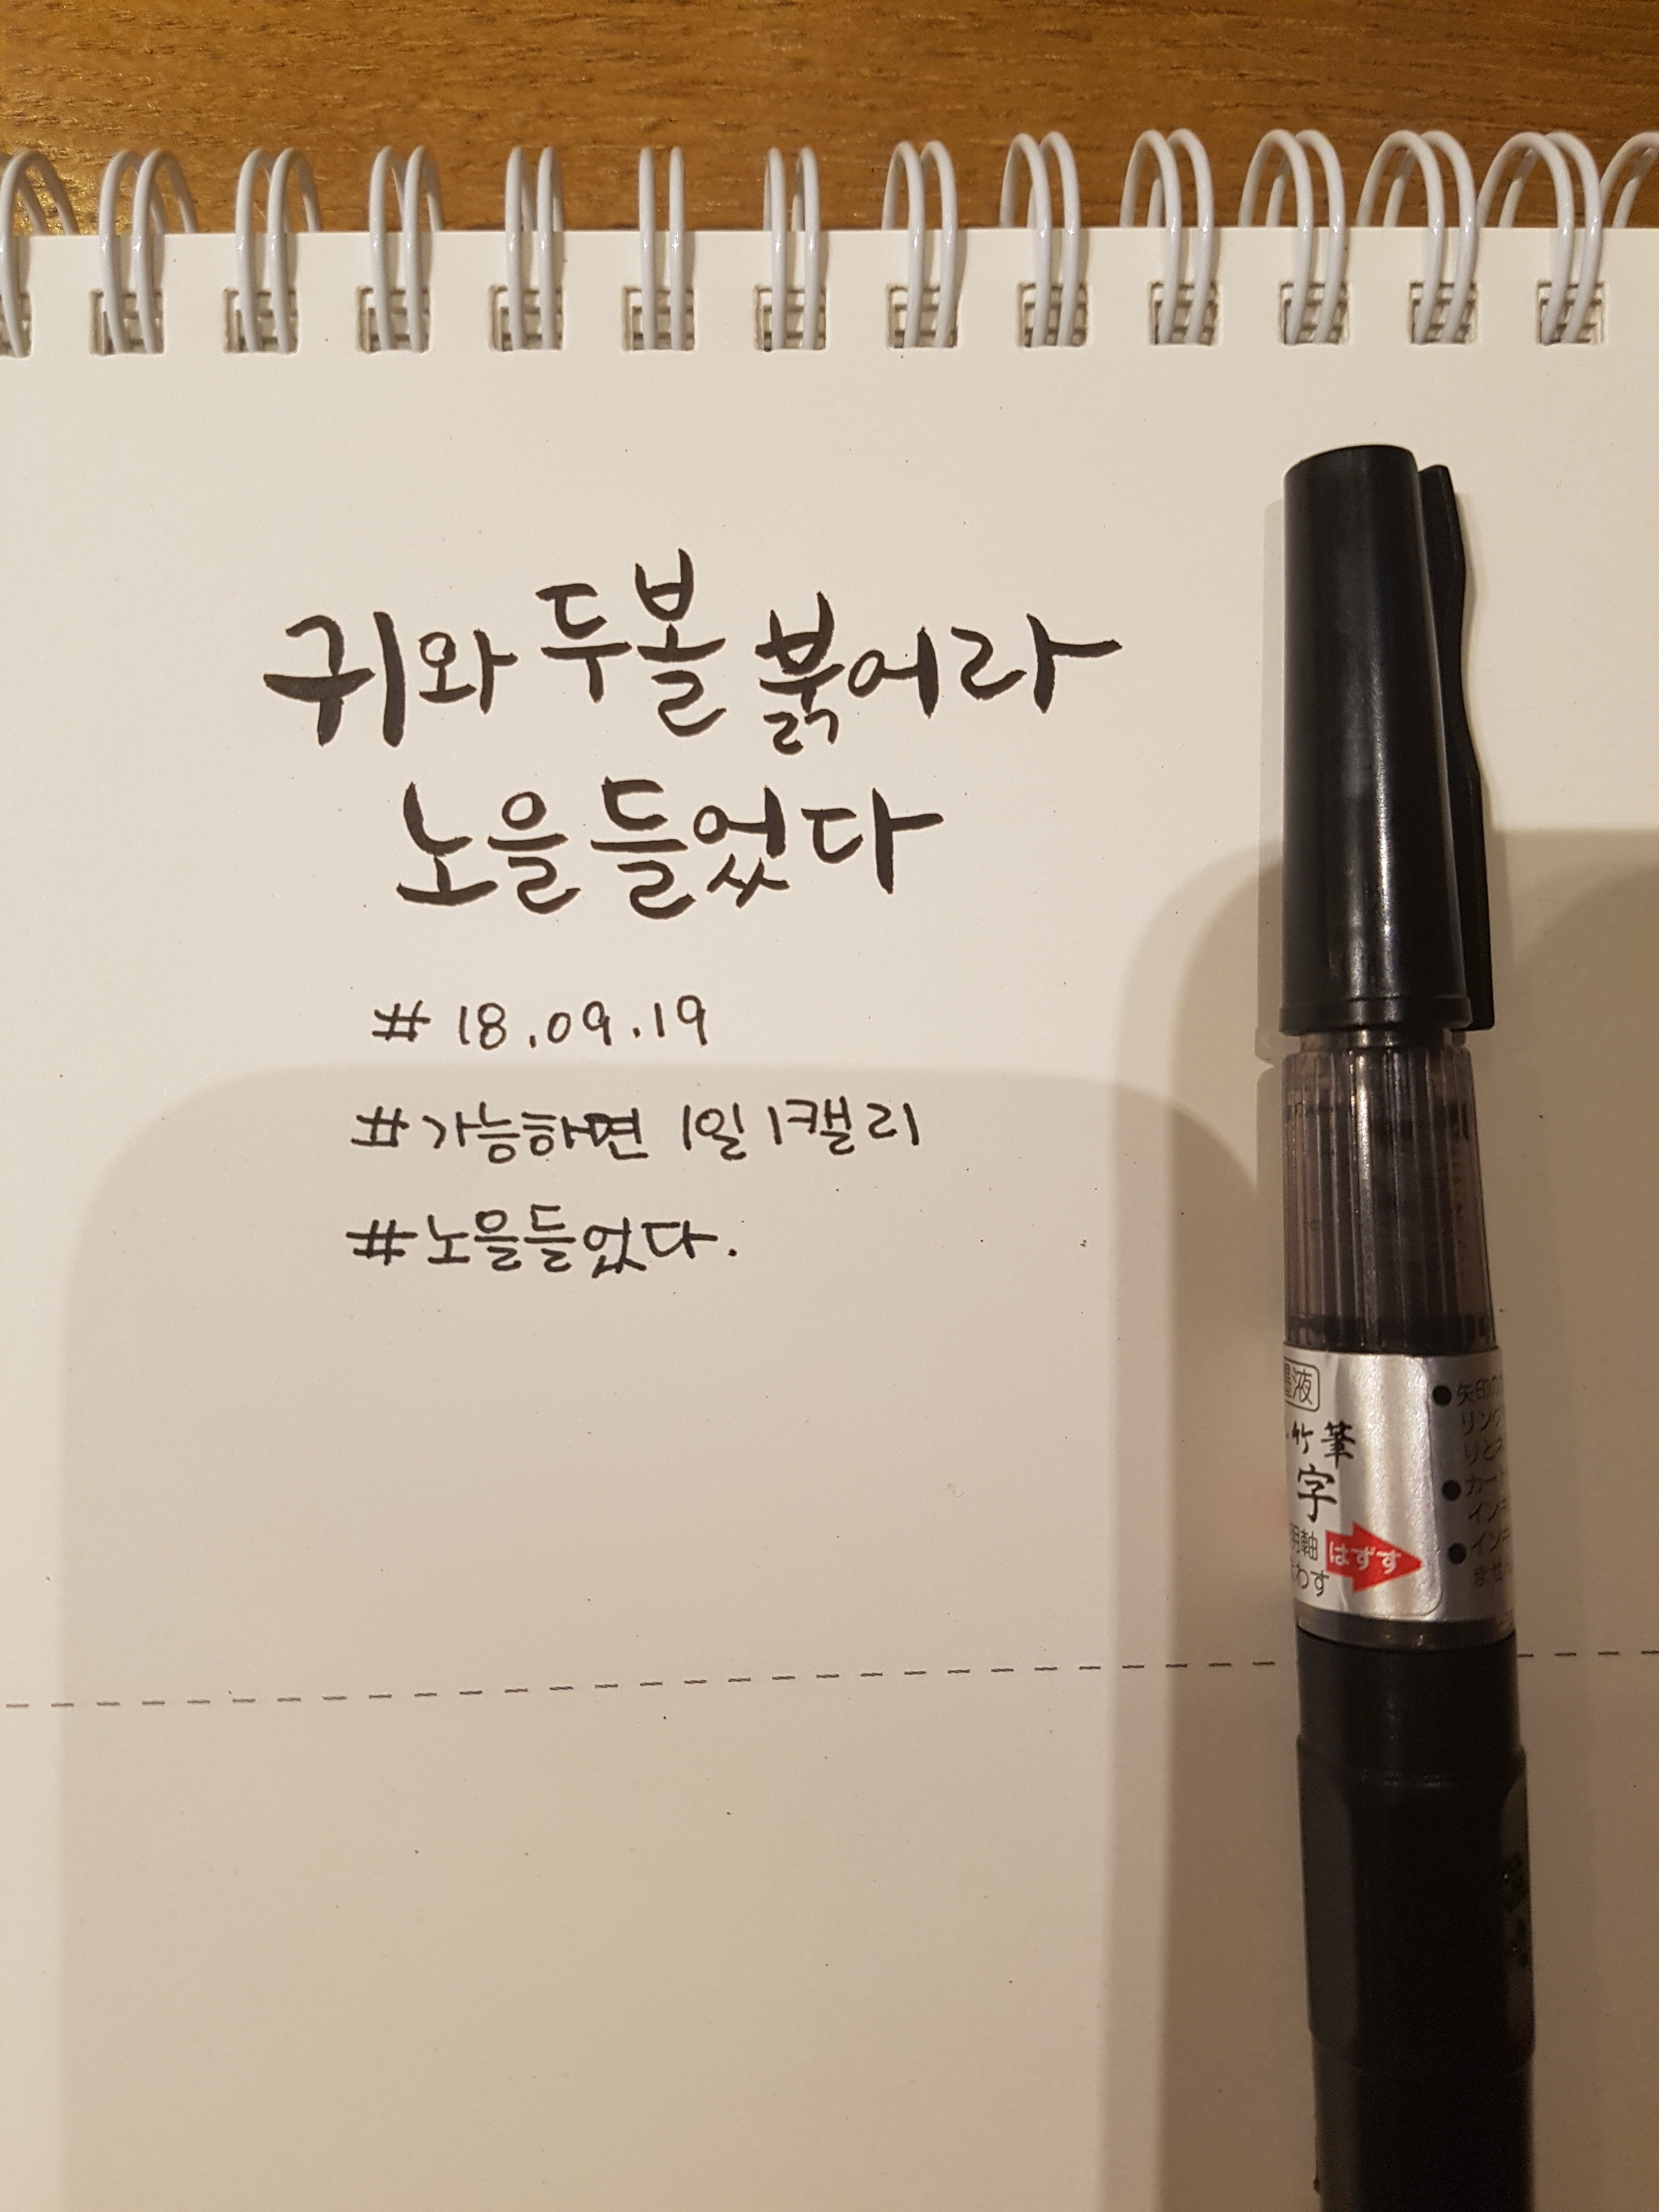 귀와 두볼 붉어라
노을 들었다
# 18.09.19
#가능하면 1일 1캘리
#노을들었다.
液
竹筆
字
軸 はずす
わす
● 矢印の
リング
りと
● カート
インキ
● インキ
ませ